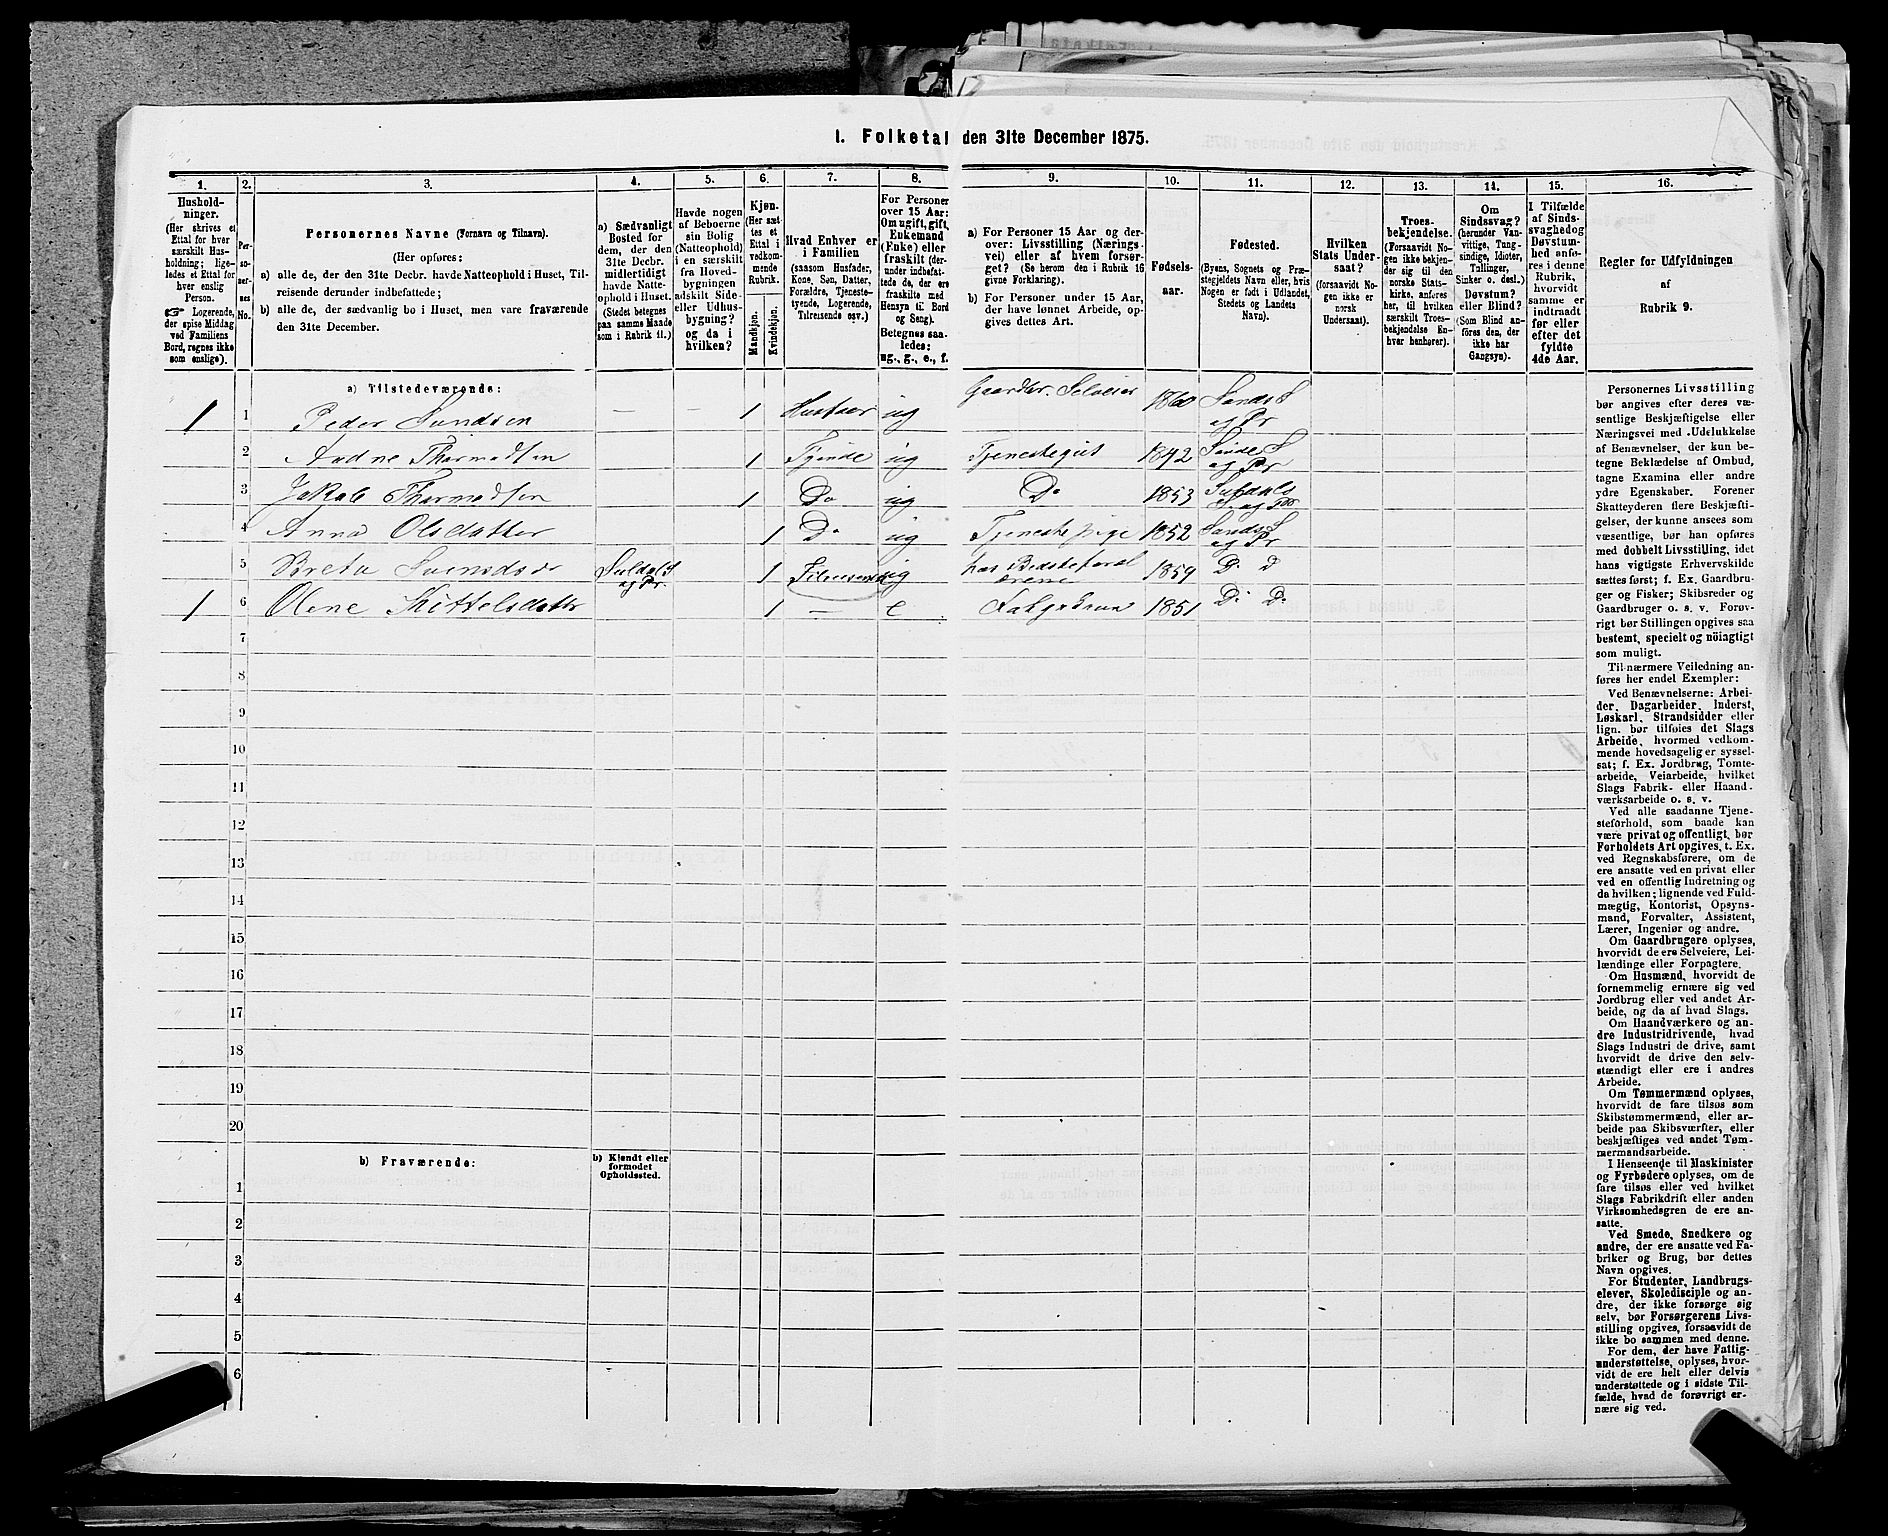 I. Folketal den 31te December 1875.
1.
Hushold-
ninger.
(Her skrives et
Ettal for hver
særskilt Hus-
holdning; lige-
ledes et Ettal for
hver enslig
Person.
☞ Logerende,
der spise Middag
ved Familiens
Bord, regnes ikke
som enslige).
2.
Per-
soner-
nes
No.
3.
Personernes Navne (Fornavn og Tilnavn).
(Her opføres:
a) alle de, der den 31te Decbr. havde Natteophold i Huset, Til-
reisende derunder indbefattede;
b) alle de, der sædvanlig bo i Huset, men vare fraværende
den 31te December.
4.
a) Sædvanligt
Bosted for
dem, der den
31te Decbr.
midlertidigt
havde Natte-
ophold i Huset.
(Stedet betegnes
paa samme Maade
som i Rubrik 11.)
5.
Havde nogen
af Beboerne
sin Bolig
(Natteophold)
i en særskilt
fra Hoved-
bygningen
adskilt Side-
eller Udhus-
bygning?
og da i
hvilken?
6.
Kjøn.
(Her sæt-
tes et
Ettal i
vedkom-
mende
Rubrik.
Mandkjøn.
Kvindekjøn.
7.
Hvad Enhver er
i Familien
(saasom Husfader,
Kone, Søn, Datter,
Forældre, Tjeneste-
tyende, Logerende,
Tilreisende osv.)
8.
For Personer
over 15 Aar:
Om ugift, gift,
Enkemand
(Enke) eller
fraskilt (der-
under indbefat-
tede de, der ere
fraskilte med
Hensyn til Bord
og Seng).
Betegnes saa-
ledes:
ug., g., e., f.
9.
a) For Personer 15 Aar og der-
over: Livsstilling (Nærings-
vei) eller af hvem forsør-
get? (Se herom den i Rubrik 16
givne Forklaring).
b) For Personer under 15 Aar,
der have lønnet Arbeide, op-
gives dettes Art.
10.
Fødsels-
aar.
11.
Fødested.
(Byens, Sognets og Præ-
stegjeldets Navn eller, hvis
Nogen er født i Udlandet,
Stedets og Landets
Navn).
12.
Hvilken
Stats Under-
saat?
(forsaavidt No-
gen ikke er
norsk
Undersaat).
13.
Troes-
bekjendelse.
(Forsaavidt No-
gen ikke bekjen-
der sig til den
norske Stats-
kirke, anføres
her, til hvilken
særskilt Troes-
bekjendelse En-
hver henhører).
14.
Om
Sindssvag?
(herunder Van-
vittige, Tung-
sindige, Idioter,
Tullinger,
Sinker o. desl.)
Døvstum?
eller Blind?
(Som Blind an-
føres den, der
ikke har
Gangsyn).
15.
I Tilfælde
af Sinds-
svaghed og
Døvstum-
hed anfø-
res i denne
Rubrik,
hvorvidt
samme er
indtraadt
før eller
efter det
fyldte
4de Aar.
16.
Regler for Udfyldningen
af
Rubrik 9.
a) Tilstedeværende:
1 1 Peder Sundsen — — 1 Husfaer ug Gaardbr. Selveier 1860 Sands S og Pr
2 Andne Thormodsen 1 Tjende ug Tjenestegut 1842 S og Pr
3 Jakob Thormodsen 1 Do ug Do 1853 Suldals S og Pr
4 Anna Olsdatter 1 Do ug Tjenestepige 1852 Sands S og Pr
5 Breta Svensdtr Suldals og Pr. 1 ug hos Bedsteforælrene 1859 D D
1 6 Olene Kittelsdatter 1 — e 1851 Do Do
7
8
9
10
11
12
13
14
15
16
17
18
19
20
b) Fraværende:
b) Kjendt eller
formodet
Opholdssted.
1
2
3
4
5
6
Personernes Livsstilling
bør angives efter deres væ-
sentlige Beskjæftigelse eller
Næringsvei med Udelukkelse
af Benævnelser, der kun be-
tegne Beklædelse af Ombud,
tagne Examina eller andre
ydre Egenskaber. Forener
Skatteyderen flere Beskjæfti-
gelser, der kunne ansees som
væsentlige, bør han opføres
med dobbelt Livsstilling, idet
hans vigtigste Erhvervskilde
sættes først; f. Ex. Gaardbru-
ger og Fisker; Skibsreder og
Gaardbruger o. s. v. Forøv-
rigt bør Stillingen opgives saa
bestemt, specielt og nöiagtigt
som muligt.
Til nærmere Veiledning an-
føres her endel Exempler:
Ved Benævnelserne: Arbei-
der, Dagarbeider, Inderst,
Løskarl, Strandsidder eller
lign. bør tilføies det Slags
Arbeide, hvormed vedkom-
mende hovedsagelig er syssel-
sat; f. Ex. Jordbrug, Tomte-
arbeide, Veiarbeide, hvilket
Slags Fabrik- eller Haand-
værksarbeide o. s. v.
Ved alle saadanne Tjene-
steforhold, som baade kan
være privat og offentligt, bør
Forholdets Art opgives, t. Ex.
ved Regnskabsførere, om de
ere ansatte ved en privat eller
ved en offentlig Indretning og
da hvilken; lignende ved Fuld-
mægtig, Kontorist, Opsyns-
mand, Forvalter, Assistent,
Lærer, Ingeniør og andre.
Om Gaardbrugere oplyses,
hvorvidt de ere Selveiere, Lei-
lændinge eller Forpagtere.
Om Husmænd, hvorvidt de
fornemmelig ernære sig ved
Jordbrug eller ved andet Ar-
beide, og da af hvad Slags.
Om Haandværkere og an-
dre Industridrivende, hvad
Slags Industri de drive, samt
hvorvidt de drive den selv-
stændigt eller ere i andres
Arbeide.
Om Tømmermænd oplyses,
hvorvidt de fare tilsøs som
Skibstømmermænd, eller ar-
beide paa Skibsværfter, eller
beskjæftiges ved andet Tøm-
mermandsarbeide.
I Henseende til Maskinister
og Fyrbødere oplyses, om de
fare tilsøs eller ved hvilket
Slags Fabrikdrift eller anden
Virksomhedsgren de ere an-
satte.
Ved Smede, Snedkere og
andre, der ere ansatte ved Fa-
briker og Brug, bør dettes
Navn opgives.
For Studenter, Landbrugs-
elever, Skoledisciple og an-
dre, der ikke forsørge sig
selv, bør Forsørgerens Livs-
stilling opgives, forsaavidt de
ikke bo sammen med denne.
For dem, der have Fattig-
understøttelse, oplyses, hvor-
vidt de ere helt eller delvis
understøttede og i sidste Til-
fælde, hvad de forøvrigt er-
nære sig ved.